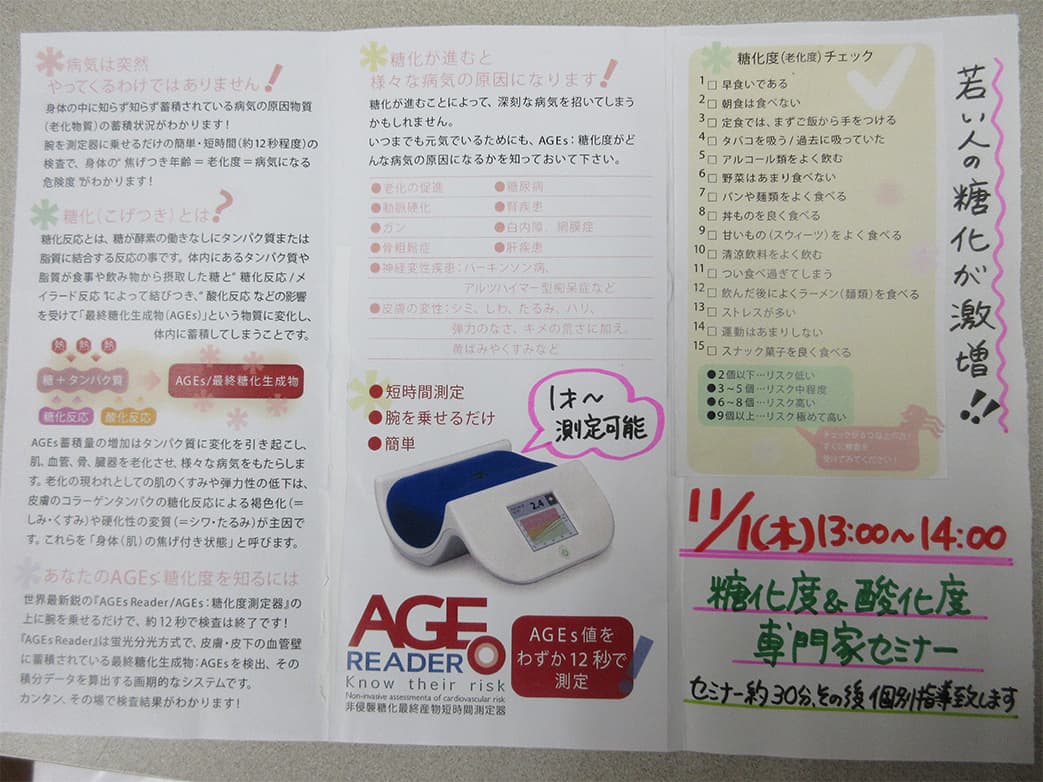 病気は突然
やってくるわけではありません!
身体の中に知らず知らず蓄積されている病気の原因物質
(老化物質)の蓄積状況がわかります!
腕を測定器に乗せるだけの簡単・短時間(約12秒程度)の
検査で、身体の“焦げつき年齢＝老化度＝病気になる
危険度”がわかります!
糖化(こげつき)とは?
糖化反応とは、糖が酵素の働きなしにタンパク質または
脂質に結合する反応の事です。体内にあるタンパク質や
脂質が食事や飲み物から摂取した糖と“糖化反応/メ
イラード反応”によって結びつき、“酸化反応”などの影響
を受けて「最終糖化生成物(AGEs)」という物質に変化し、
体内に蓄積してしまうことです。
熱 熱 熱
糖＋タンパク質
AGEs/最終糖化生成物
糖化反応 酸化反応
AGEs蓄積量の増加はタンパク質に変化を引き起こし、
肌、血管、骨、臓器を老化させ、様々な病気をもたらしま
す。老化の現われとしての肌のくすみや弾力性の低下は、
皮膚のコラーゲンタンパクの糖化反応による褐色化(＝
しみ・くすみ)や硬化性の変質(＝シワ・たるみ)が主因で
す。これらを「身体(肌)の焦げ付き状態」と呼びます。
あなたのAGEs:糖化度を知るには
世界最新鋭の『AGEs Reader/AGEs:糖化度測定器』の
上に腕を乗せるだけで、約12秒で検査は終了です!
『AGEs Reader』は蛍光分光方式で、皮膚・皮下の血管壁
に蓄積されている最終糖化生成物:AGEsを検出、その
積分データを算出する画期的なシステムです。
カンタン、その場で検査結果がわかります!
糖化が進むと
様々な病気の原因になります!
糖化が進むことによって、深刻な病気を招いてしまう
かもしれません。
いつまでも元気でいるためにも、AGEs:糖化度がど
んな病気の原因になるかを知っておいて下さい。
●老化の促進 ●糖尿病
●動脈硬化 ●腎疾患
●ガン ●白内障、網膜症
●骨粗鬆症 ●肝疾患
●神経変性疾患:パーキンソン病、
アルツハイマー型痴呆症など
●皮膚の変性:シミ、しわ、たるみ、ハリ、
弾力のなさ、キメの荒さに加え、
黄ばみやくすみなど
●短時間測定
●腕を乗せるだけ
●簡単
1才～
測定可能
2.4
AGE
READER
Know their risk
Non-invasive assessmenta of cardiovascular risk
非侵襲糖化最終産物短時間測定器
AGEs値を
わずか12秒で
測定!
糖化度(老化度)チェック
1□早食いである
2□朝食は食べない
3□定食では、まずご飯から手をつける
4□タバコを吸う/過去に吸っていた
5□アルコール類をよく飲む
6□野菜はあまり食べない
7□パンや麺類をよく食べる
8□丼ものを良く食べる
9□甘いもの(スウィーツ)をよく食べる
10□清涼飲料をよく飲む
11□つい食べ過ぎてしまう
12□飲んだ後によくラーメン(麺類)を食べる
13□ストレスが多い
14□運動はあまりしない
15□スナック菓子を良く食べる
●2個以下…リスク低い
●3～5個…リスク中程度
●6～8個…リスク高い
●9個以上…リスク極めて高い
若い人の糖化が激増!!
11/1(木)13:00～14:00
糖化度&酸化度
専門家セミナー
セミナー約30分、その後個別指導致します